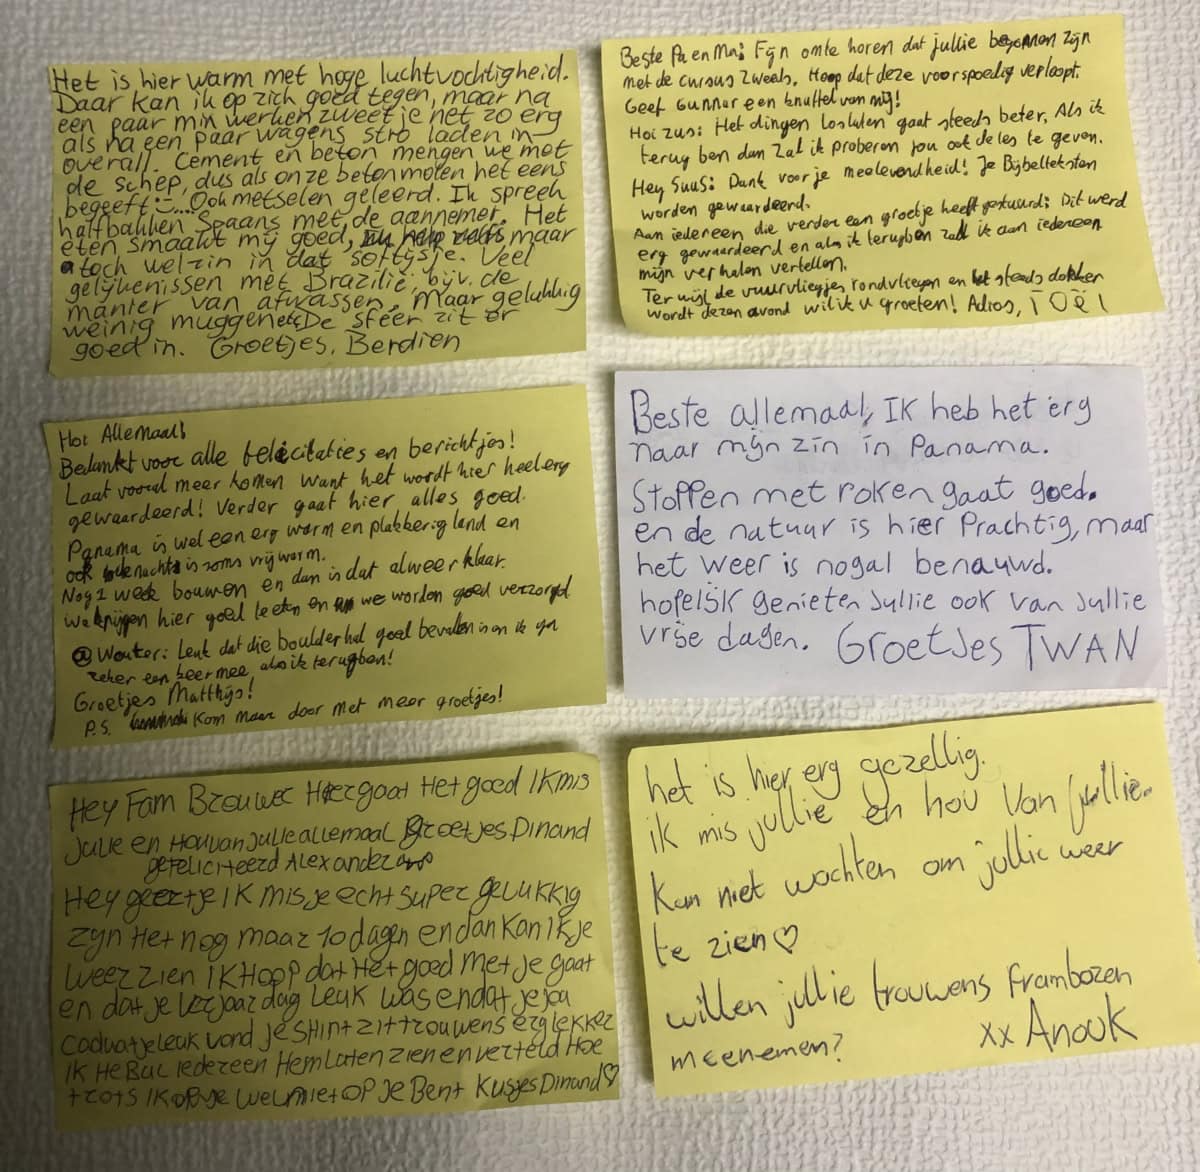 Het is hier warm met hoge luchtvochtigheid.
Daar kan ik op zich goed tegen, maar na
een paar min werken zweet je net zo erg
als na een paar wagens stro laden in
overall. Cement en beton mengen we met
de schep, dus als onze betonmolen het eens
begeeft :-).... Ook metselen geleerd. Ik spreek
halfbakken Spaans met de aannemer. Het
eten smaakt mij goed, maar
toch wel zin in dat softijsje. Veel
gelijkenissen met Brazilië, bijv. de
manier van afwassen. Maar gelukkig
weinig muggen. De sfeer zit er
goed in. Groetjes, Berdien
Beste Pa en Ma; Fijn om te horen dat jullie begonnen zijn
met de cursus Zweeds. Hoop dat deze voorspoedig verloopt.
Geef Gunnar een knuffel van mij!
Hoi zus: Het dingen loslaten gaat steeds beter. Als ik
terug ben dan zal ik proberen jou ook de les te geven.
Hey Suus: Dank voor je meelevendheid! Je Bijbelteksten
worden gewaardeerd.
Aan iedereen die verder een groetje heeft gestuurd: Dit werd
erg gewaardeerd en als ik terug ben zal ik aan iedereen
mijn verhalen vertellen.
Terwijl de vuurvliegjes rondvliegen en het steeds donker
wordt dezen avond wil ik u groeten! Adios, Toël
Hoi Allemaal!
Bedankt voor alle felicitaties en berichtjes!
Laat vooral meer komen want het wordt hier heel erg
gewaardeerd! Verder gaat hier alles goed.
Panama is wel een erg warm en plakkerig land en
ook 's nachts is soms vrij warm.
Nog 1 week bouwen en dan is dat alweer klaar.
We krijgen hier goed te eten en we worden goed verzorgd
@Wouter: Leuk dat die boulderhal goed bevallen is en ik ga
zeker een keer mee als ik terug ben!
Groetjes Matthijs!
P.S. Kom maar door met meer groetjes!
Beste allemaal, IK heb het erg
naar mijn zin in Panama.
Stoppen met roken gaat goed.
en de natuur is hier Prachtig, maar
het weer is nogal benauwd.
hopelijk genieten Jullie ook van Jullie
vrije dagen. Groetjes TWAN
Hey Fam Brouwer Hier gaat Het goed IK mis
Julie en Hou van Julie allemaal Groetjes Dinand
gefeliciteerd Alexander
Hey geertje IK mis je echt super gelukkig
zyn Het nog maar 10 dagen en dan kan IK je
weer zien IK Hoop dat Het goed met je gaat
en dat je verjaardag Leuk was en dat je jou
caduatje leuk vond Je Shirt zit trouwens erg lekker
IK Heb al Iedereen Hem laten zien en verteld Hoe
trots IK op je wel niet op Je Bent Kusjes Dinand♡
het is hier erg gezellig.
ik mis jullie en hou van jullie.
Kan niet wachten om jullie weer
te zien♡
willen jullie trouwens frambozen
meenemen? xx Anouk